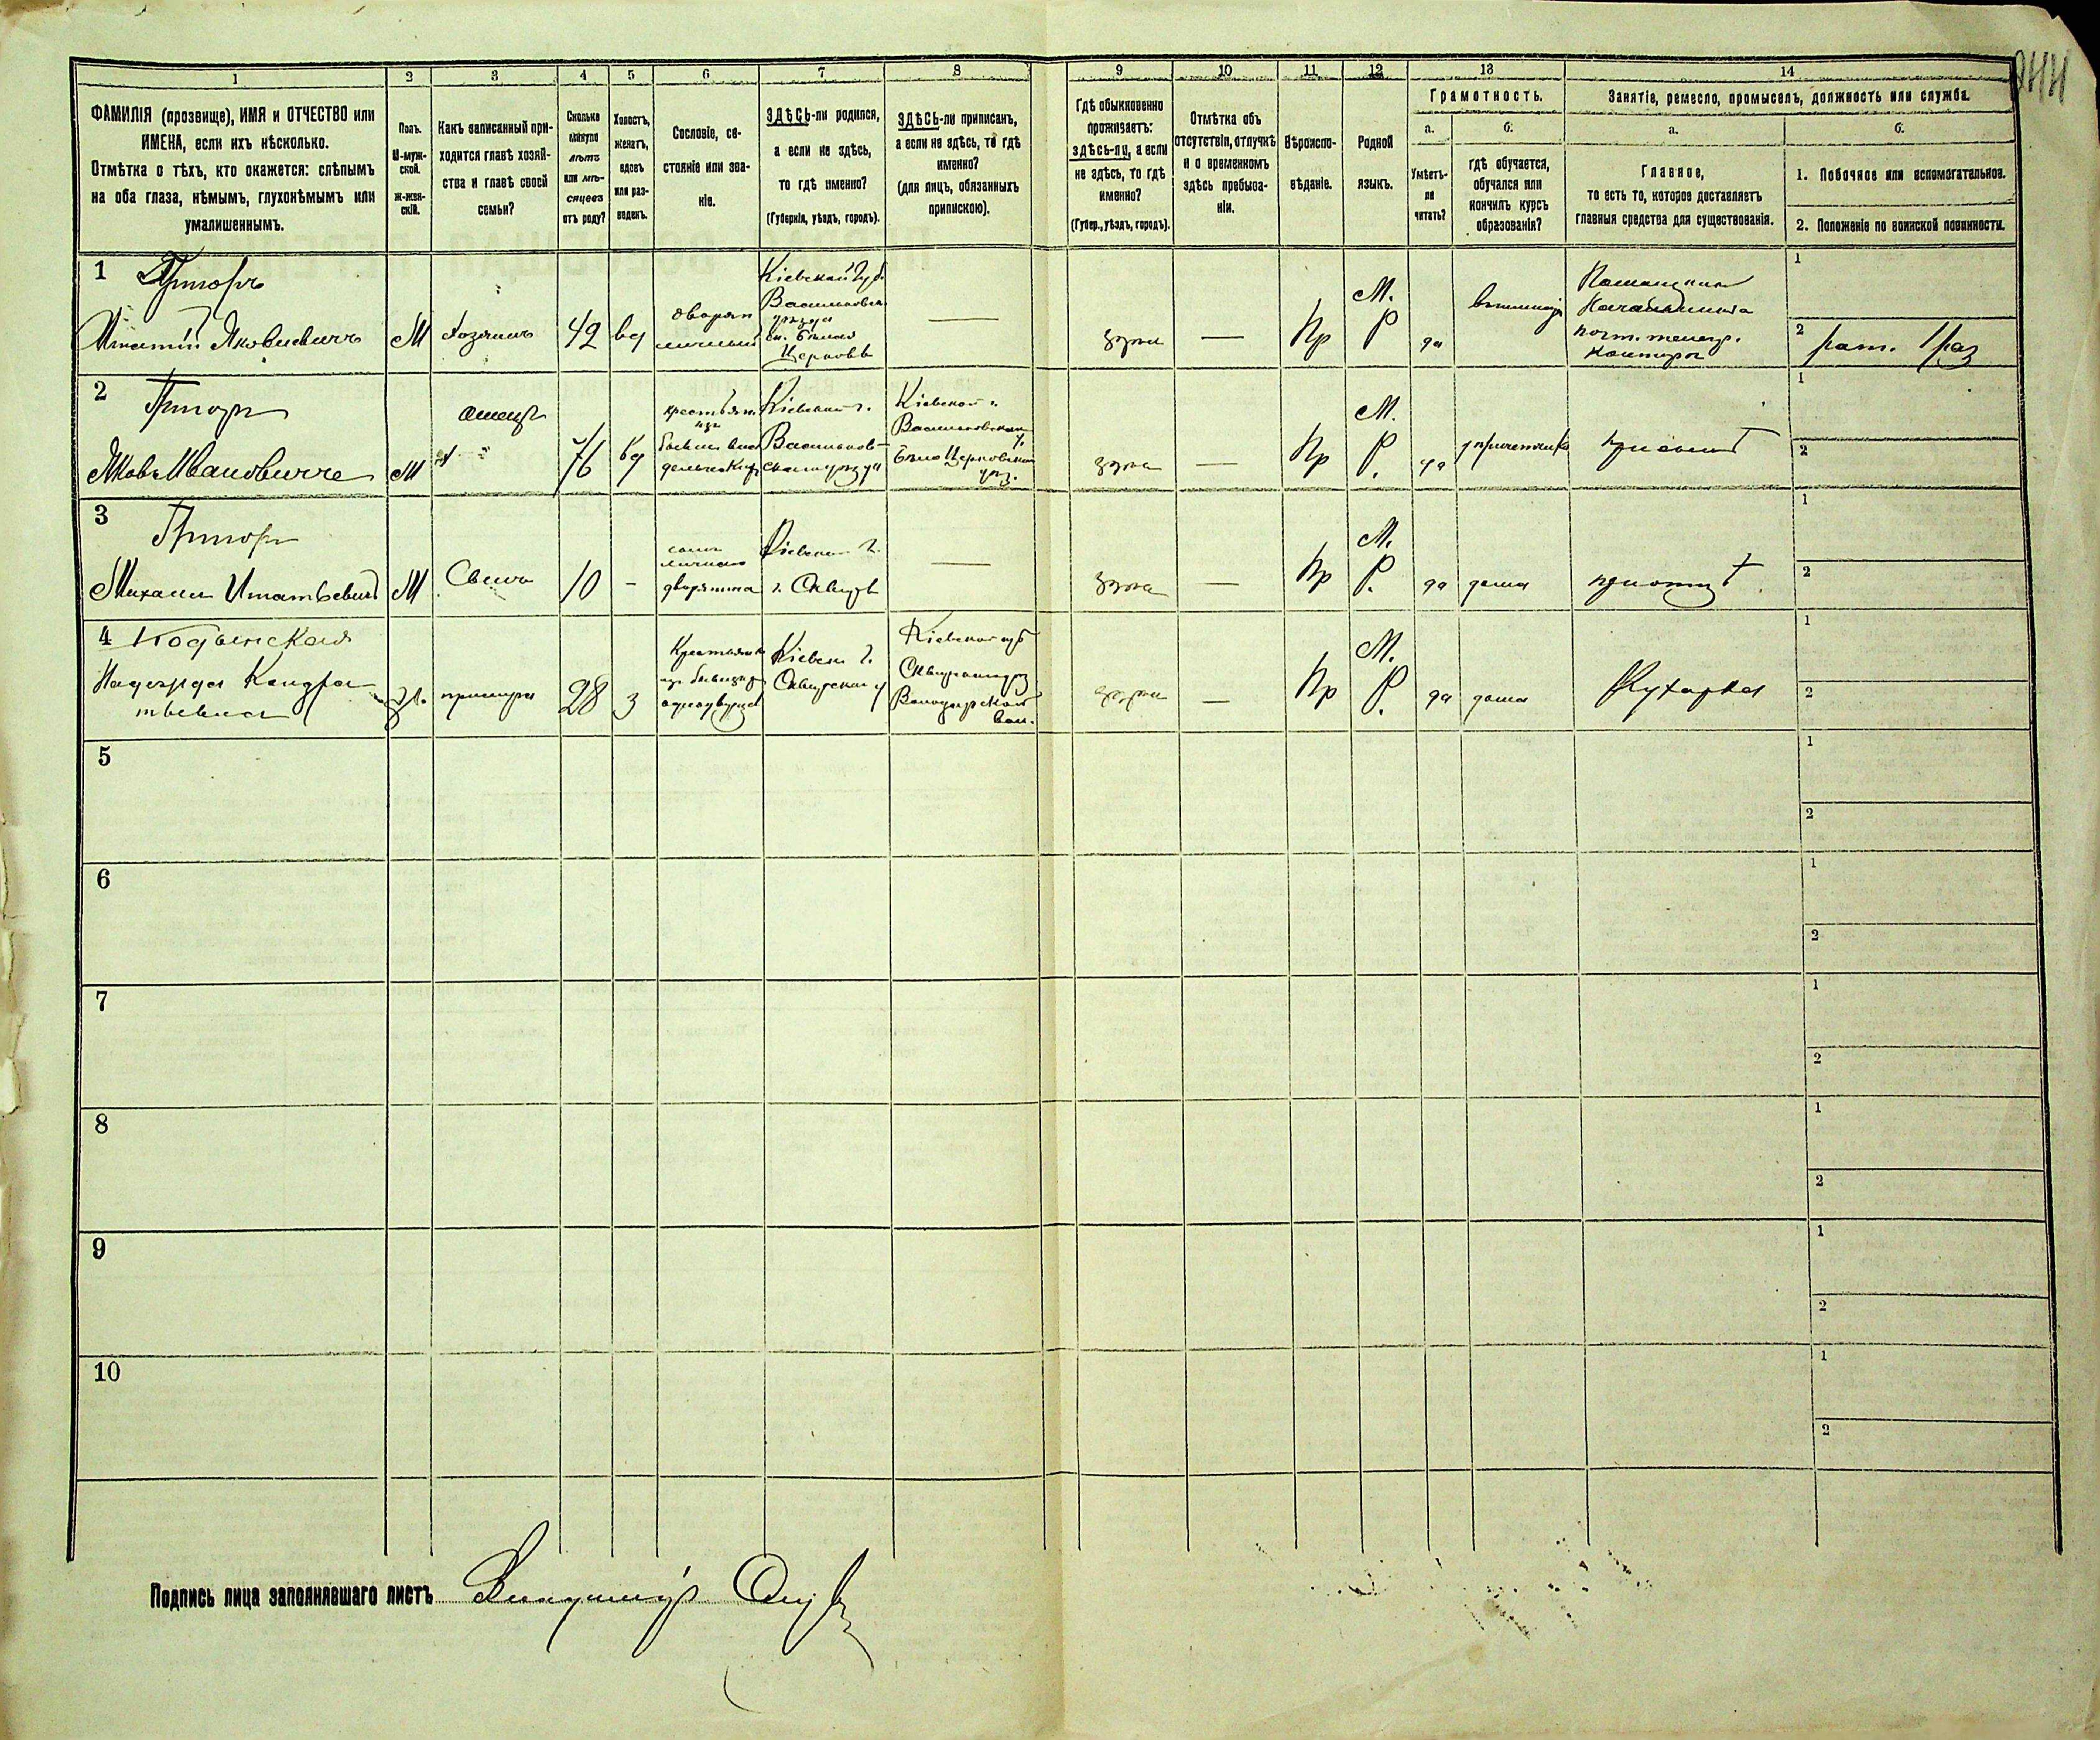 1 2 3 4 5 6 7 8 9 10 11 12 13 14
ФАМИЛІЯ (прозвище), ИМЯ и ОТЧЕСТВО или
ИМЕНА, если ихъ нѣсколько.
Отмѣтка о тѣхъ, кто окажется: слѣпымъ
на оба глаза, нѣмымъ, глухонѣмымъ или
умалишеннымъ.
Полъ.
М-муж-
ской.
ж-жен-
скій.
Какъ записанный при-
ходится главѣ хозяй-
ства и главѣ своей
семьи?
Сколько
минуло
лѣтъ
или мѣ-
сяцевъ
отъ роду?
Холостъ,
женатъ,
вдовъ
или раз-
веденъ.
Сословіе, со-
стояніе или зва-
ніе.
ЗДѢСЬ-ли родился,
а если не здѣсь,
то гдѣ именно?
(Губернія, уѣздъ, городъ).
ЗДѢСЬ-ли приписанъ,
а если не здѣсь, то гдѣ
именно?
(для лицъ, обязанныхъ
припискою).
Гдѣ обыкновенно
проживаетъ:
здѣсь-ли, а если
не здѣсь, то гдѣ
именно?
(Губер., уѣздъ, городъ).
Отмѣтка объ
отсутствіи, отлучкѣ
и о временномъ
здѣсь пребыва-
ніи.
Вѣроиспо-
вѣданіе.
Родной
языкъ.
Грамотность.
а.
Умѣетъ-
ли
читать?
б.
гдѣ обучается,
обучался или
кончилъ курсъ
образованія?
Занятіе, ремесло, промыселъ, должность или служба.
а.
Главное,
то есть то, которое доставляетъ
главныя средства для существованія.
б.
1. Побочное или вспомогательное.
2. Положеніе по воинской повинности.
1
Игнатій Яковлевичъ
М
Хозяинъ
42
вд
дворян
личный
Кіевской Губ.
Васильковск
уѣзда
Бѣлая
Церковь
—
здѣсь
—
Пр
М.
Р
да
Помощник
Начальника
почт. телегр.
конторы
1
2 рат. 1 раз
2
Яковъ Ивановичъ
М
отецъ
76
вд
крестьян.
изъ
Кіевской г.
Васильков-
скаго уѣзда
Кіевской г.
Васильковскаго
у.
Бѣлоцерковской
здѣсь
—
Пр
М.
Р.
да
1
2
3
Михаилъ Игнатьевичъ
М
Сынъ
10
-
сынъ
личнаго
дворянина
Кіевской г.
г. Сквирѣ
—
здѣсь
—
Пр
М.
Р.
да
дома
при отцѣ
1
2
4
Надежда Кондра
тьевна
ж.
прислуга
28
з
Крестьянка
изъ бывшихъ
однодворцевъ
Кіевск г.
Сквирскаго у
Кіевской губ
Володарской
вол.
здѣсь
—
Пр
М.
Р.
да
дома
Кухарка
1
2
5
1
2
6
1
2
7
1
2
8
1
2
9
1
2
10
1
2
Подпись лица заполнявшаго листъ